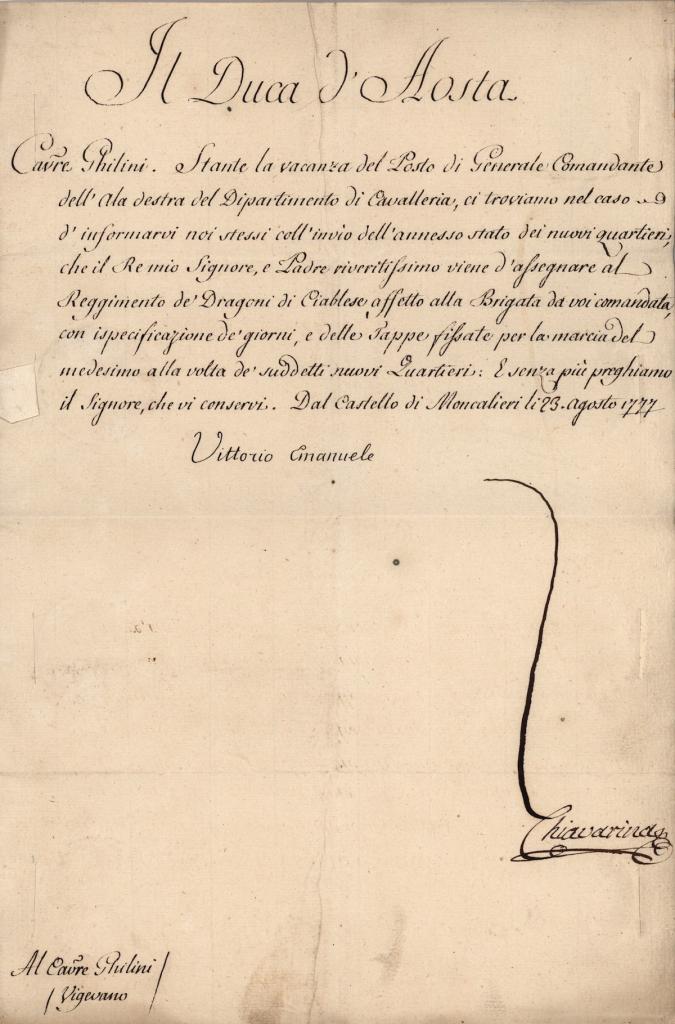 Il Duca d'Aosta
Cavre Ghilini. Stante la vacanza del Posto di Generale Comandante
dell'Ala destra del Dipartimento di Cavalleria, ci troviamo nel caso
d'informarvi noi stessi coll'invio dell'annesso stato dei nuovi quartieri,
che il Re mio Signore, e Padre riveritissimo viene d'assegnare al
Reggimento de' Dragoni di Ciablese affetto alla Brigata da voi comandata,
con ispecificazione de' giorni, e delle Tappe fissate per la marcia del
medesimo alla volta de' suddetti nuovi Quartieri: E senza più preghiamo
il Signore, che vi conservi. Dal Castello di Moncalieri li 23. Agosto 1777
Vittorio Emanuele
Chiavarina
Al Cavre Ghilini
Vigevano